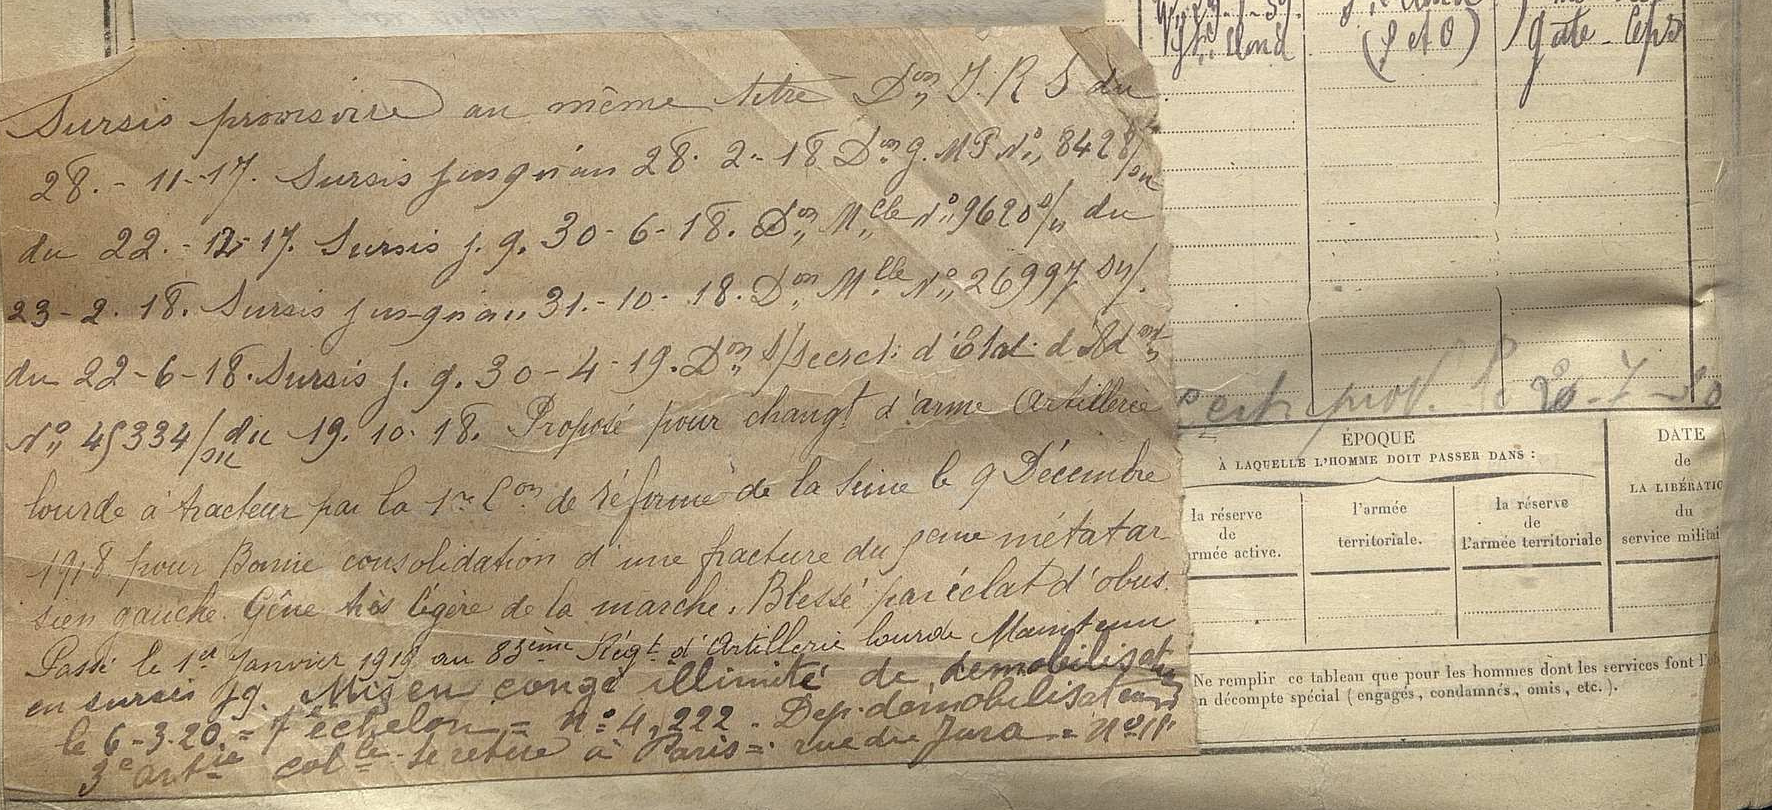 Sursis provisoire au même titre Don J. R S du
28.- 11-17. Sursis jusqu'au 28. 2.- 18 Don g. MP No 8428/
du 22.-12-17. Sursis j. q. 30-6-18. Don Mlle No 9620/ du
23-2. 18. Sursis jusqu'au 31.-10-18. Don Mlle No 26997
du 22-6-18. Sursis j. q. 30-4-19. Don S/Secret. d'Etat d'Adon
No 45334/ du 19. 10. 18. Proposé pour changt d'arme Artillerie
lourde à tracteur par la 1re Con de réforme de la Seine le 9 Décembre
1918 pour Bonne consolidation d'une fracture du 5eme métatar
sien gauche. Gêne très légère de la marche. Blessé par éclat d'obus.
Passé le 1er Janvier 1919 au 83ème Régt d'Artillerie lourde Maintenu
en sursis jq. Mis en congé illimité de démobilisation
le 6-3-20 = échelon = no 4,222 - Dep. démobilisateur
3e artie colle se retire à Paris = rue du Jura = no
(S et O)
le 20-7-20
ÉPOQUE
À LAQUELLE L'HOMME DOIT PASSER DANS :
la réserve
de
rmée active.
l'armée
territoriale.
la réserve
de
l'armée territoriale
DATE
de
LA LIBÉRATIO
du
service militai
Ne remplir ce tableau que pour les hommes dont les services font l'
n décompte spécial (engagés, condamnés, omis, etc.).